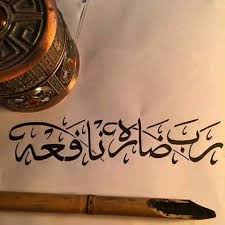 رَبَ ضارهٍ نافعه